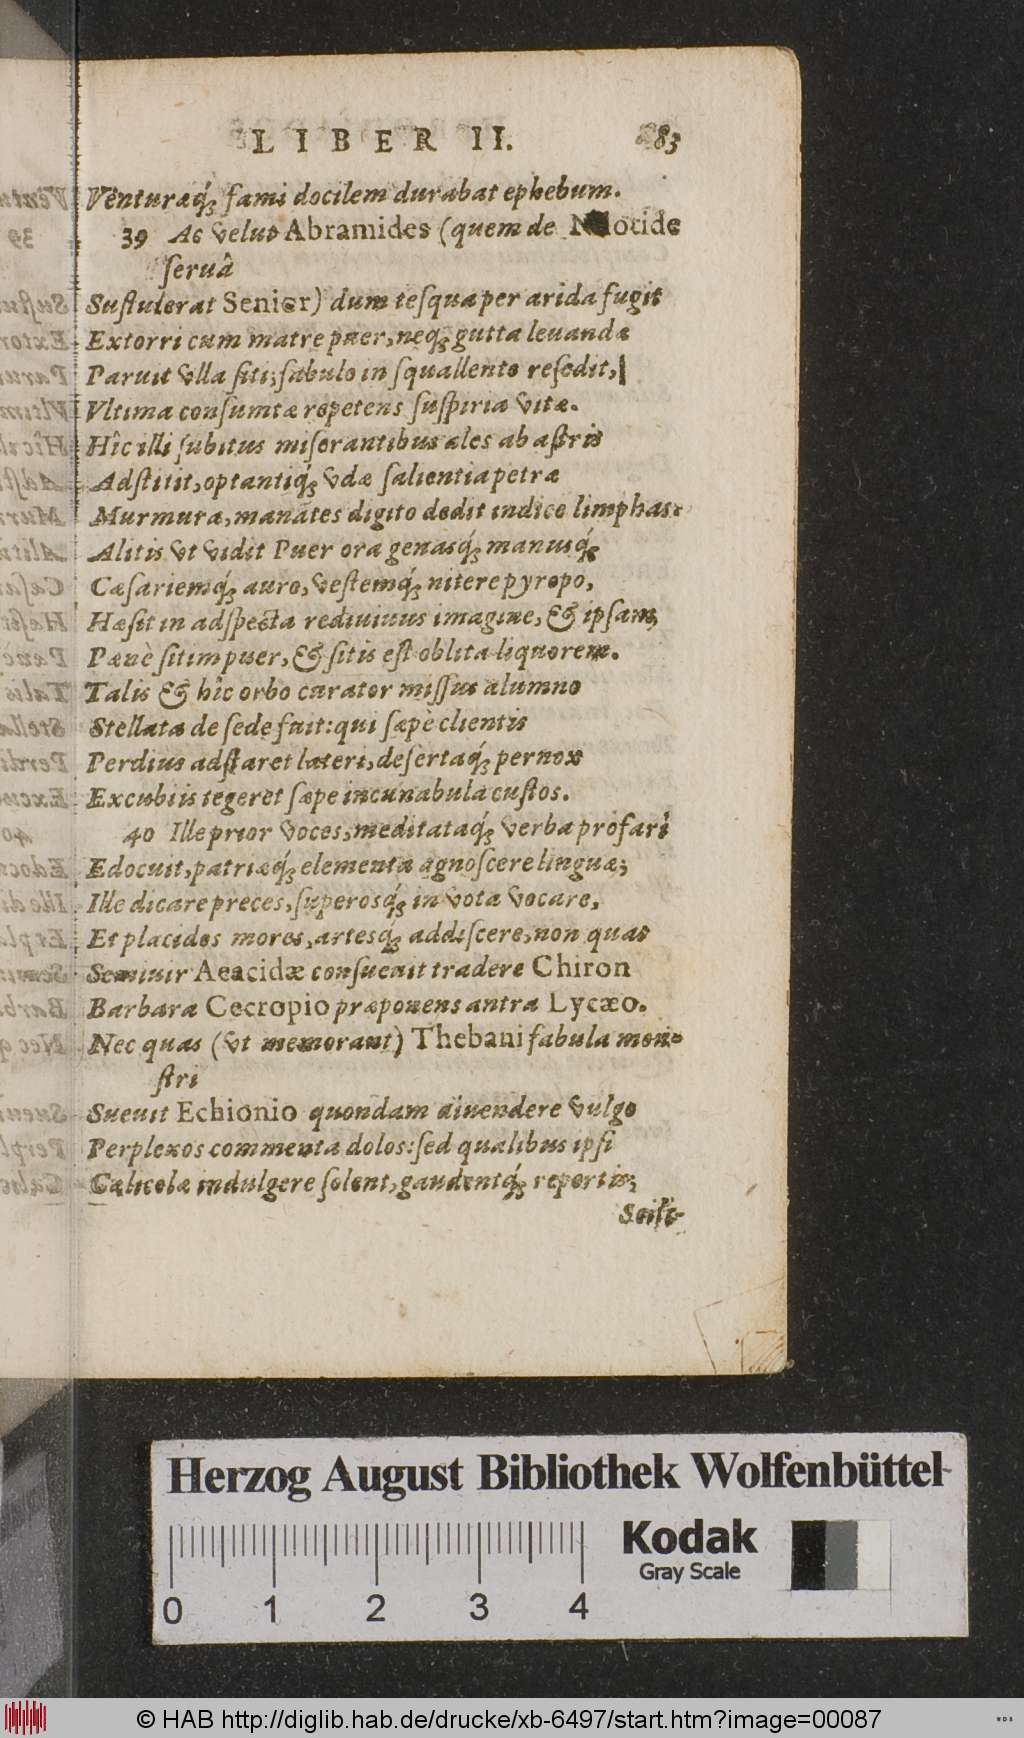 LIBER II. 83
Venturæq́; fami docilem durabat ephebum.
39 Ac velut Abramides (quem de Nilotide
seruâ
Sustulerat Senior) dum tesqua per arida fugit
Extorri cum matre puer, neq; gutta leuandæ
Paruit vlla siti; sabulo in squallente resedit,
Vltima consumtæ repetens suspiria vitæ.
Hîc illi subitus miserantibus ales ab astris
Adstitit, optantiq́; vdæ salientia petræ
Murmura, manātes digito dedit indice limphas:
Alitis vt vidit Puer ora genasq́; manusq́;
Cæsariemq́; auro, vestemq́; nitere pyropo,
Hæsit in adspecta rediuiuus imagine, & ipsam,
Pænè sitim puer, & sitis est oblita liquorem.
Talis & hîc orbo curator missus alumno
Stellata de sede fuit: qui sæpè clientis
Perdius adstaret lateri, desertaq́; pernox
Excubiis tegeret sæpe incunabula custos.
40 Ille prior voces, meditataq́; verba profari
Edocuit, patriæq́; elementa agnoscere linguæ;
Ille dicare preces, superosq́; in vota vocare,
Et placidos mores, artesq́; addiscere, non quas
Semiuir Aeacidæ consueuit tradere Chiron
Barbara Cecropio præponens antra Lycæo.
Nec quas (vt memorant) Thebani fabula mon-
stri
Sueuit Echionio quondam diuendere vulgo
Perplexos commenta dolos: sed qualibus ipsi
Cælicolæ indulgere solent, gaudentq́; repertis;
Herzog August Bibliothek Wolfenbüttel
Kodak
Gray Scale
0 1 2 3 4
© HAB http://diglib.hab.de/drucke/xb-6497/start.htm?image=00087